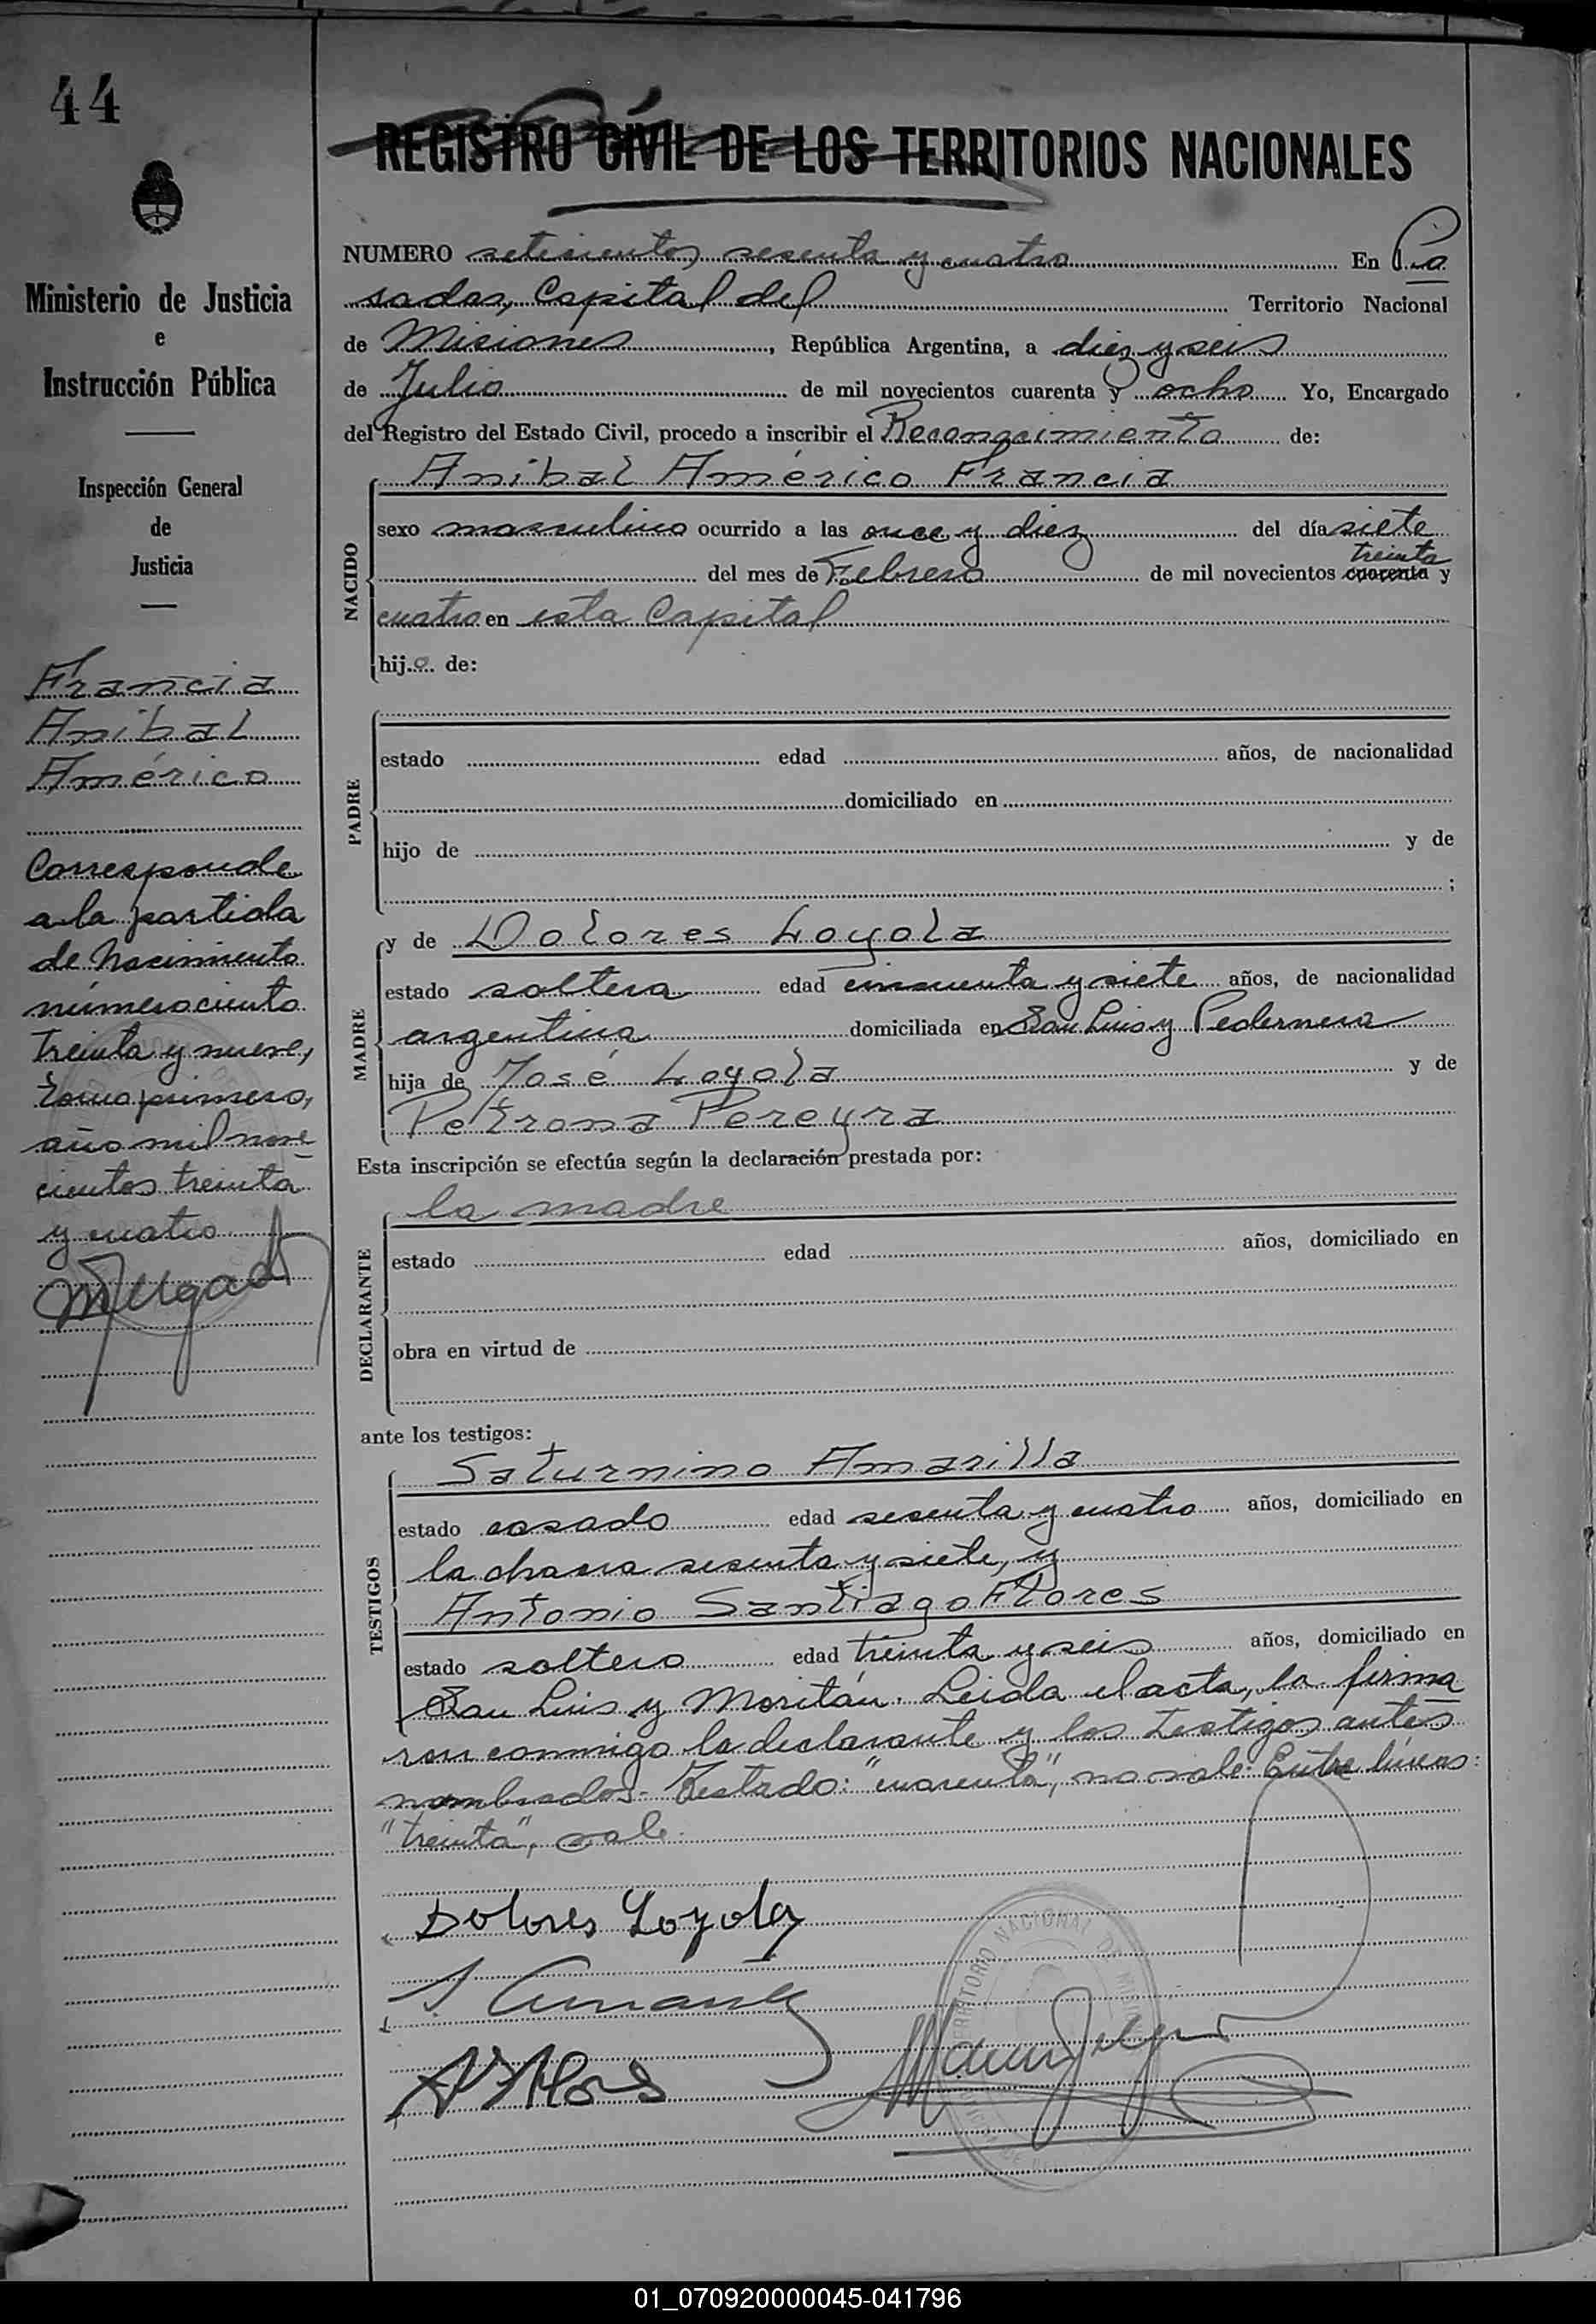 44
Ministerio de Justicia
e
Instrucción Pública
Inspección General
de
Justicia
Francia
Anibal
Américo
Corresponde
a la partida
de Nacimiento
número ciento
treinta y nueve,
tomo primero,
año mil nove
cientos treinta
y cuatro
REGISTRO CIVIL DE LOS TERRITORIOS NACIONALES
NUMERO setecientos sesenta y cuatro En Po
sadas, Capital del Territorio Nacional
de Misiones, República Argentina, a diez y seis
de Julio de mil novecientos cuarenta y ocho Yo, Encargado
del Registro del Estado Civil, procedo a inscribir el Reconocimiento de:
NACIDO
Anibal Américo Francia
sexo masculino ocurrido a las once y diez del día siete
treinta
del mes de Febrero de mil novecientos cuarenta y
cuatro en esta Capital
hijo de:
PADRE
estado edad años, de nacionalidad
domiciliado en
hijo de y de
;
MADRE
y de Dolores Loyola
estado soltera edad cincuenta y siete años, de nacionalidad
argentina domiciliada en San Luis y Pedernera
hija de José Loyola y de
Petrona Pereyra
Esta inscripción se efectúa según la declaración prestada por:
DECLARANTE
la madre
estado edad años, domiciliado en
obra en virtud de
ante los testigos:
TESTIGOS
Saturnino Amarilla
estado casado edad sesenta y cuatro años, domiciliado en
la chacra sesenta y siete, y
Antonio Santiago Flores
estado soltero edad treinta y seis años, domiciliado en
San Luis y Moritán. Leida el acta, la firma
ron conmigo la declarante y los testigos antes
nombrados.- Testado: "cuarenta", no vale. Entre líneas:
"treinta", vale.
Dolores Loyola
S. Amarilla
A S Flores
TERRITORIO NACIONAL DE
01_070920000045-041796